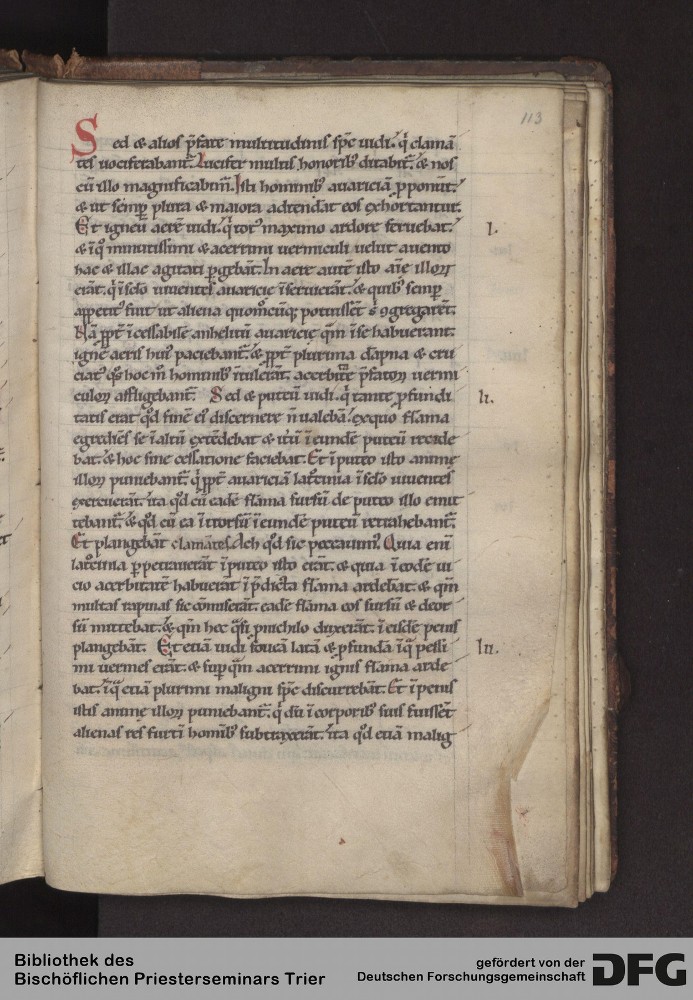 113
Sed & alios p̄fate multitudinis sp̄c uidi. q̇ clamā
tes uociferabant̄. Lucifer multis honorib; ditabit̄. & nos
cū illo magnificabim̄. Isti hominib; auariciā p̄ponūt.
& ut semp̱ plura & maiora adtendat eos exhortantur.
Et igneū aerē uidi. q̇ tot᷒ maximo ardore feruebat.
& ī q̊ minutissimi & acerrimi uermiculi uelut a uento
hac & illac agitati p̱gebāt. In aere autē isto aīe illoꝝ
erāt. q̇ ī sc̄lo uiuentes auaricie īseruierāt. & quib; semp̱
appetit᷒ fuit ut aliena quomc̄ūq; potuissēt s̄ ꝯgregarēt.
Nā ꝓpt̄ īcessabilē anhelitū auaricie quē īse habuerant.
ignē aeris hui᷒ paciebant̄. & ꝓpt̄ plurima dāpna & cru
ciat᷒ q̊s hoc m̊ hominib; ītulerāt. acerbitatē p̄fatoꝝ uermi
culoꝝ affligebant̄. Sed & puteū uidi. q̇ tante p̄fundi
I.
II.
tatis erat qd̄ finē ei᷒ discernere n̄ ualebā. ex quo flāma
egrediēs se ī altū extēdebat & itūm ī eundē puteū recide
bat. & hoc sine cessatione faciebat. Et ī puteo isto anime
illoꝝ puniebant̄. q̇ ꝓpt̄ auariciā latc̄inia ī sc̄lo uiuentes
exercuerāt. ita qd̄ cū eadē flāma sursū de puteo illo emit
tebant̄. & qd̄ cū ea ītrorsū ī eundē puteū retrahebant̄.
Et plangebāt clamātes. Ach qd̄ sic peccauim᷒. Quia eni
latc̄inia p̱petrauerāt ī puteo isto erāt. & quia ī eodē ui
cio acerbitatē habuerāt ī p̄dicta flāma ardebāt. & qm̄
multas rapinas sic cōmiserāt. eadē flāma eos sursū & deor
sū mittebat. & qm̄ hec q̄si p̱ nichilo duxerāt. ī eisdē penis
plangebāt. Et etiā uidi foueā latā & p̱fundā ī q̄ pessi
III.
mi uermes erāt. & sup̱ quā acerrimi ignis flāma arde
bat. ī q̄ etiā plurimi maligni sp̄c discurrebāt. Et ī penis
istis anime illoꝝ puniebant̄. q̇ dū ī corporib; suis fuissēt
alienas res furtī homīb; subtraxerāt. ita qd̄ etiā malig
Bibliothek des
Bischöflichen Priesterseminars Trier
gefördert von der
Deutschen Forschungsgemeinschaft
DFG